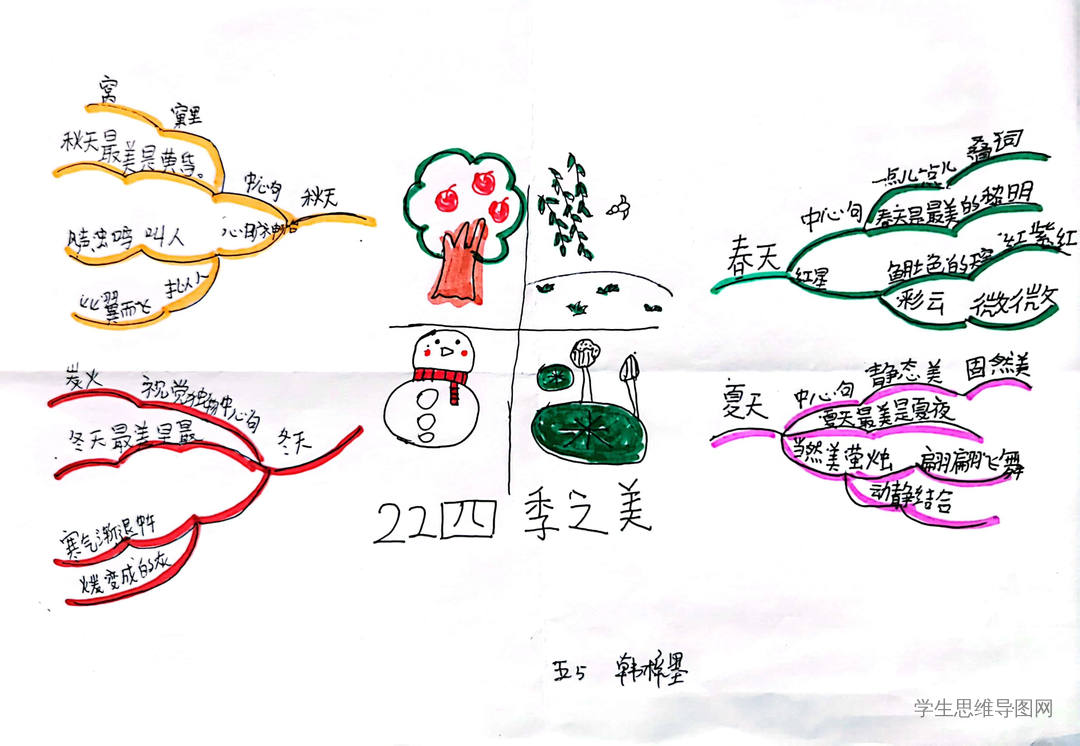 22四季之美
春天
中心句
点儿点儿
叠词
春天是最美的黎明
红星
鱼肚色的天空
红紫红
彩云
微微
夏天
中心句
静态美
固然美
夏天最美是夏夜
当然美萤烛
翩翩飞舞
动静结合
秋天
中心句
窝
窠里
秋天最美是黄昏。
叫人
比翼而飞
冬天
视觉独物中心句
炭火
冬天最美是最
寒气渐退
变成的灰
五5
学生思维导图网